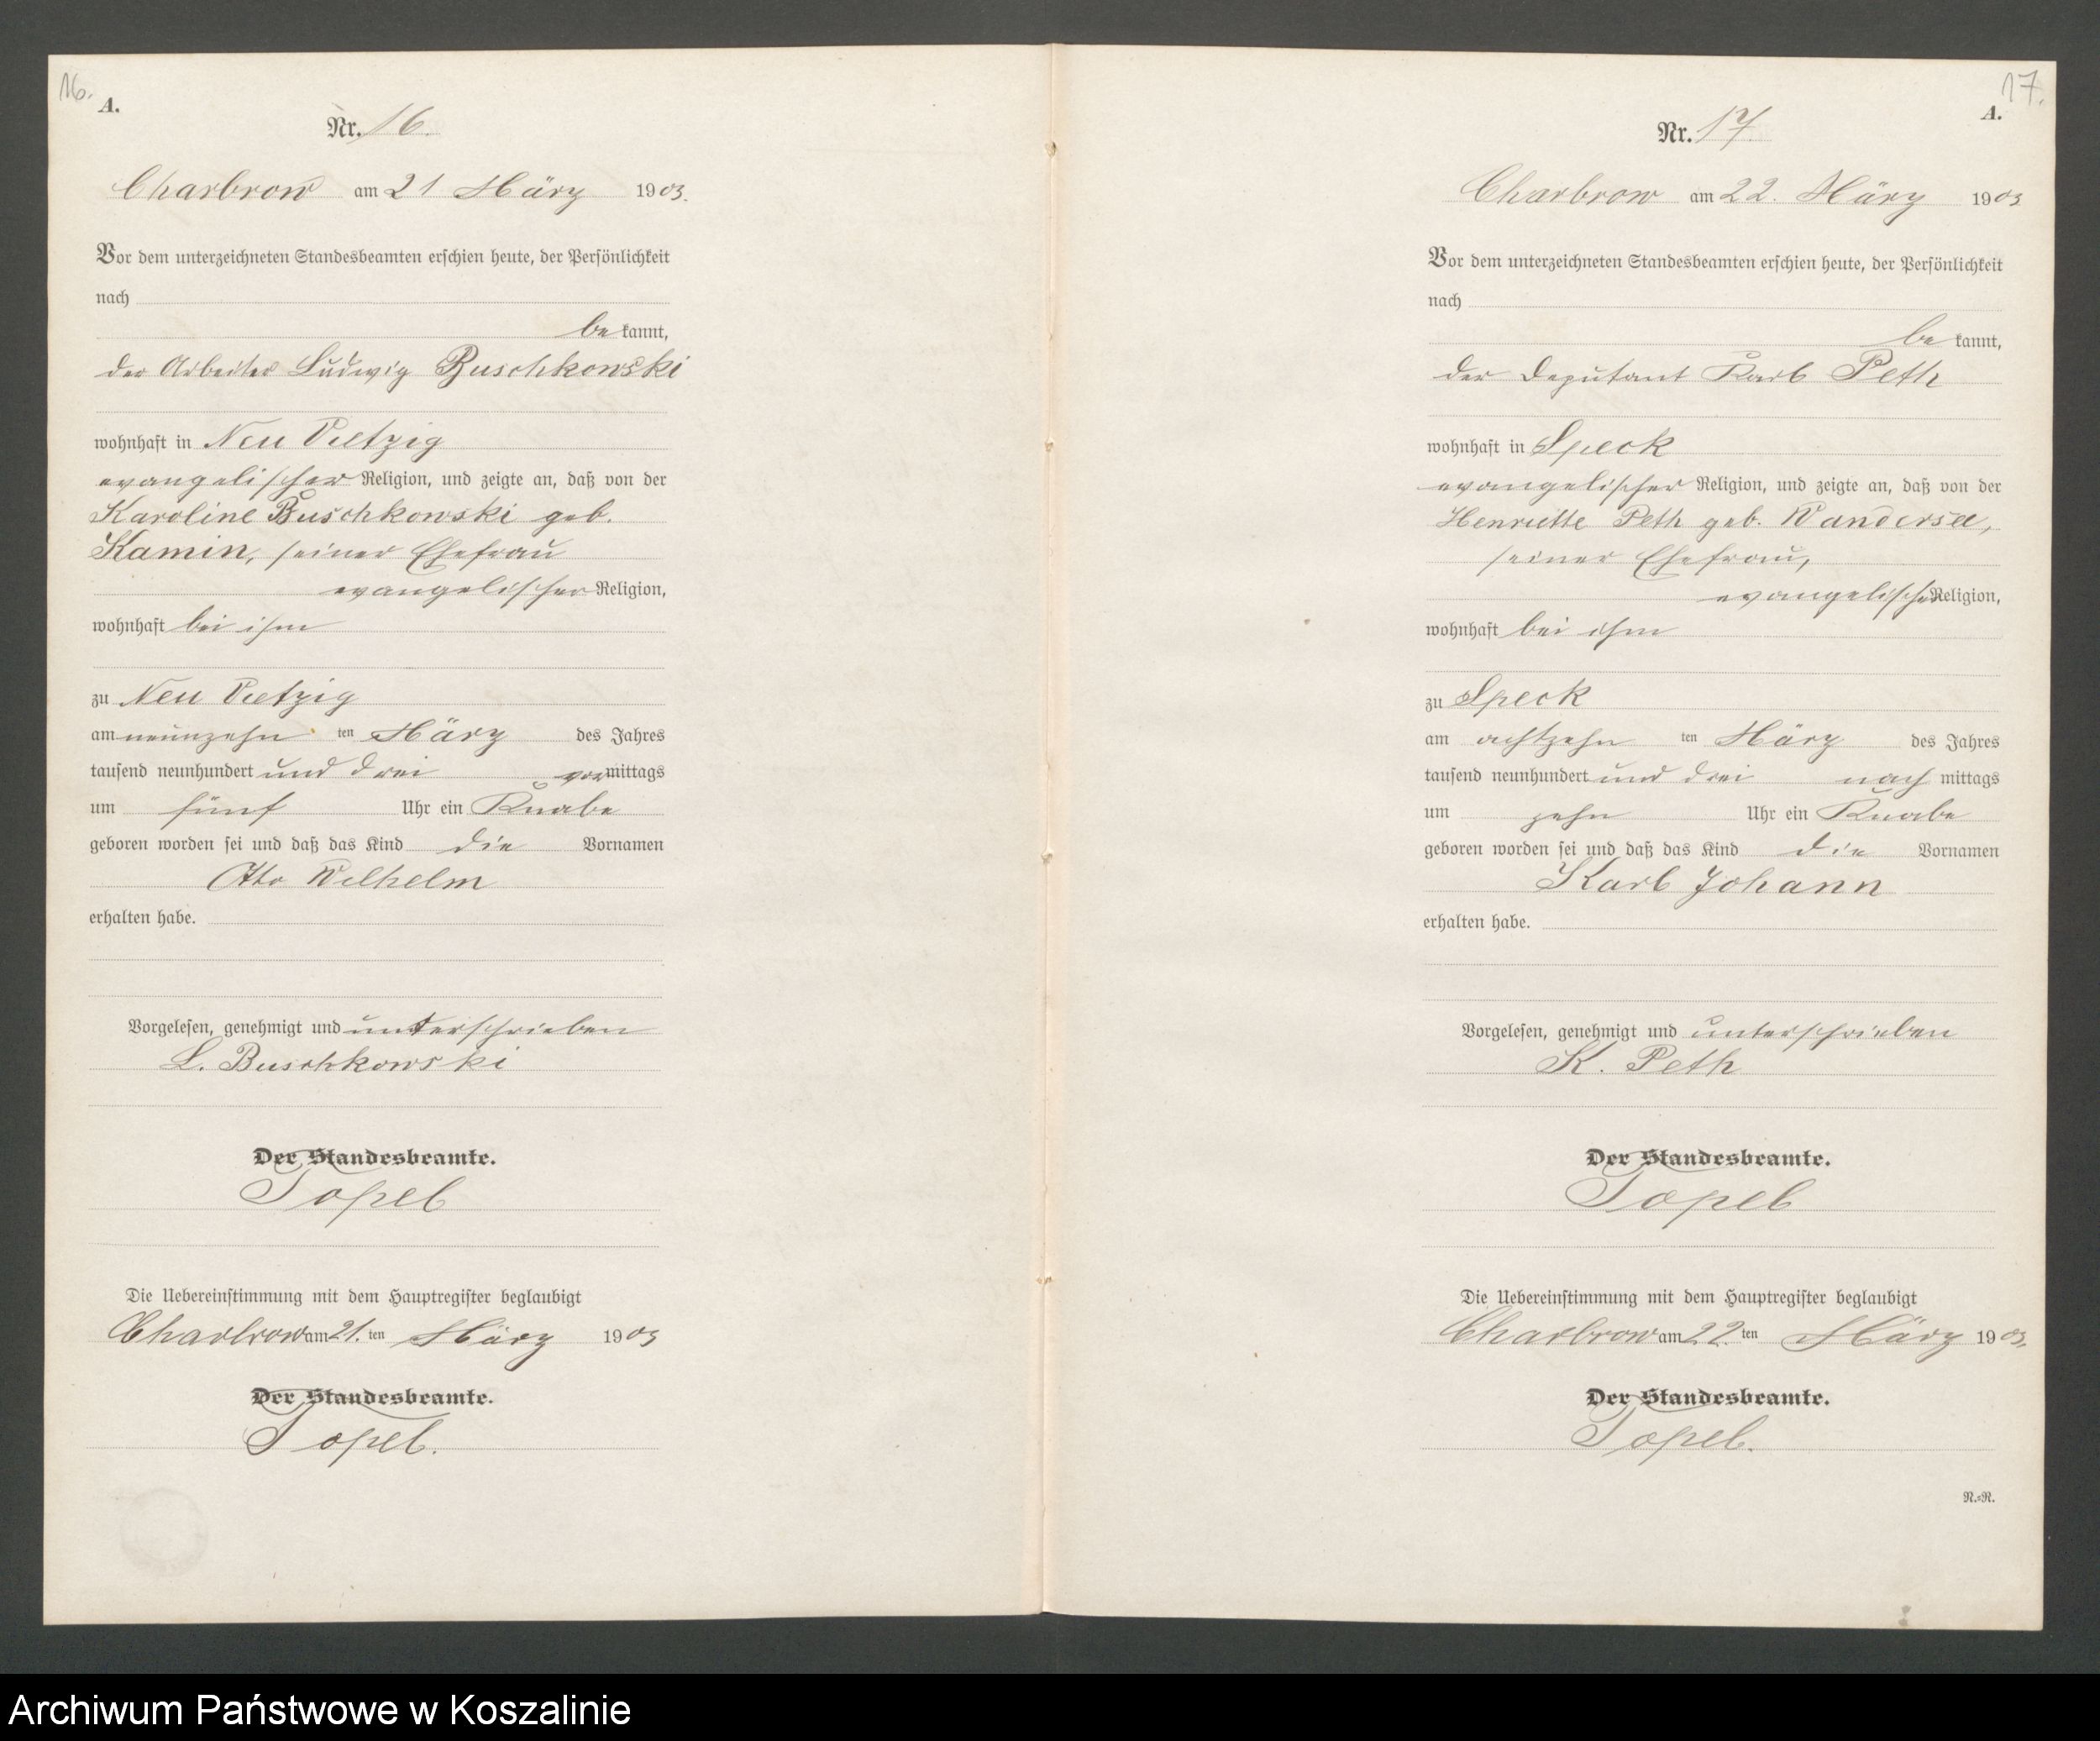 16.
A.
Nr. 16.
Charbrow am 21 März 1903.
Vor dem unterzeichneten Standesbeamten erschien heute, der Persönlichkeit
nach
be kannt,
der Arbeiter Ludwig Buschkowski
wohnhaft in Neu Vietzig
evangelischer Religion, und zeigte an, daß von der
Karoline Buschkowski geb.
Kamin, seiner Ehefrau
evangelischer Religion,
wohnhaft bei ihm
zu Neu Vietzig
am neunzehn ten März des Jahres
tausend neunhundert und drei vormittags
um fünf Uhr ein Knabe
geboren worden sei und daß das Kind die Vornamen
Otto Wilhelm
erhalten habe.
Vorgelesen, genehmigt und unterschrieben
L. Buschkowski
Der Standesbeamte.
Topel
Die Uebereinstimmung mit dem Hauptregister beglaubigt
Charbrow am 21. ten März 1903
Der Standesbeamte.
Topel.
17.
A.
Nr. 17.
Charbrow am 22. März 1903
Vor dem unterzeichneten Standesbeamten erschien heute, der Persönlichkeit
nach
be kannt,
der Deputant Karl Peth
wohnhaft in Speck
evangelischer Religion, und zeigte an, daß von der
Henriette Peth geb. Wandersee,
seiner Ehefrau,
evangelischer Religion,
wohnhaft bei ihm
zu Speck
am achtzehn ten März des Jahres
tausend neunhundert und drei nach mittags
um zehn Uhr ein Knabe
geboren worden sei und daß das Kind die Vornamen
Karl Johann
erhalten habe.
Vorgelesen, genehmigt und unterschrieben
K. Peth
Der Standesbeamte.
Topel
Die Uebereinstimmung mit dem Hauptregister beglaubigt
Charbrow am 22. ten März 1903.
Der Standesbeamte.
Topel.
N.=R.
Archiwum Państwowe w Koszalinie